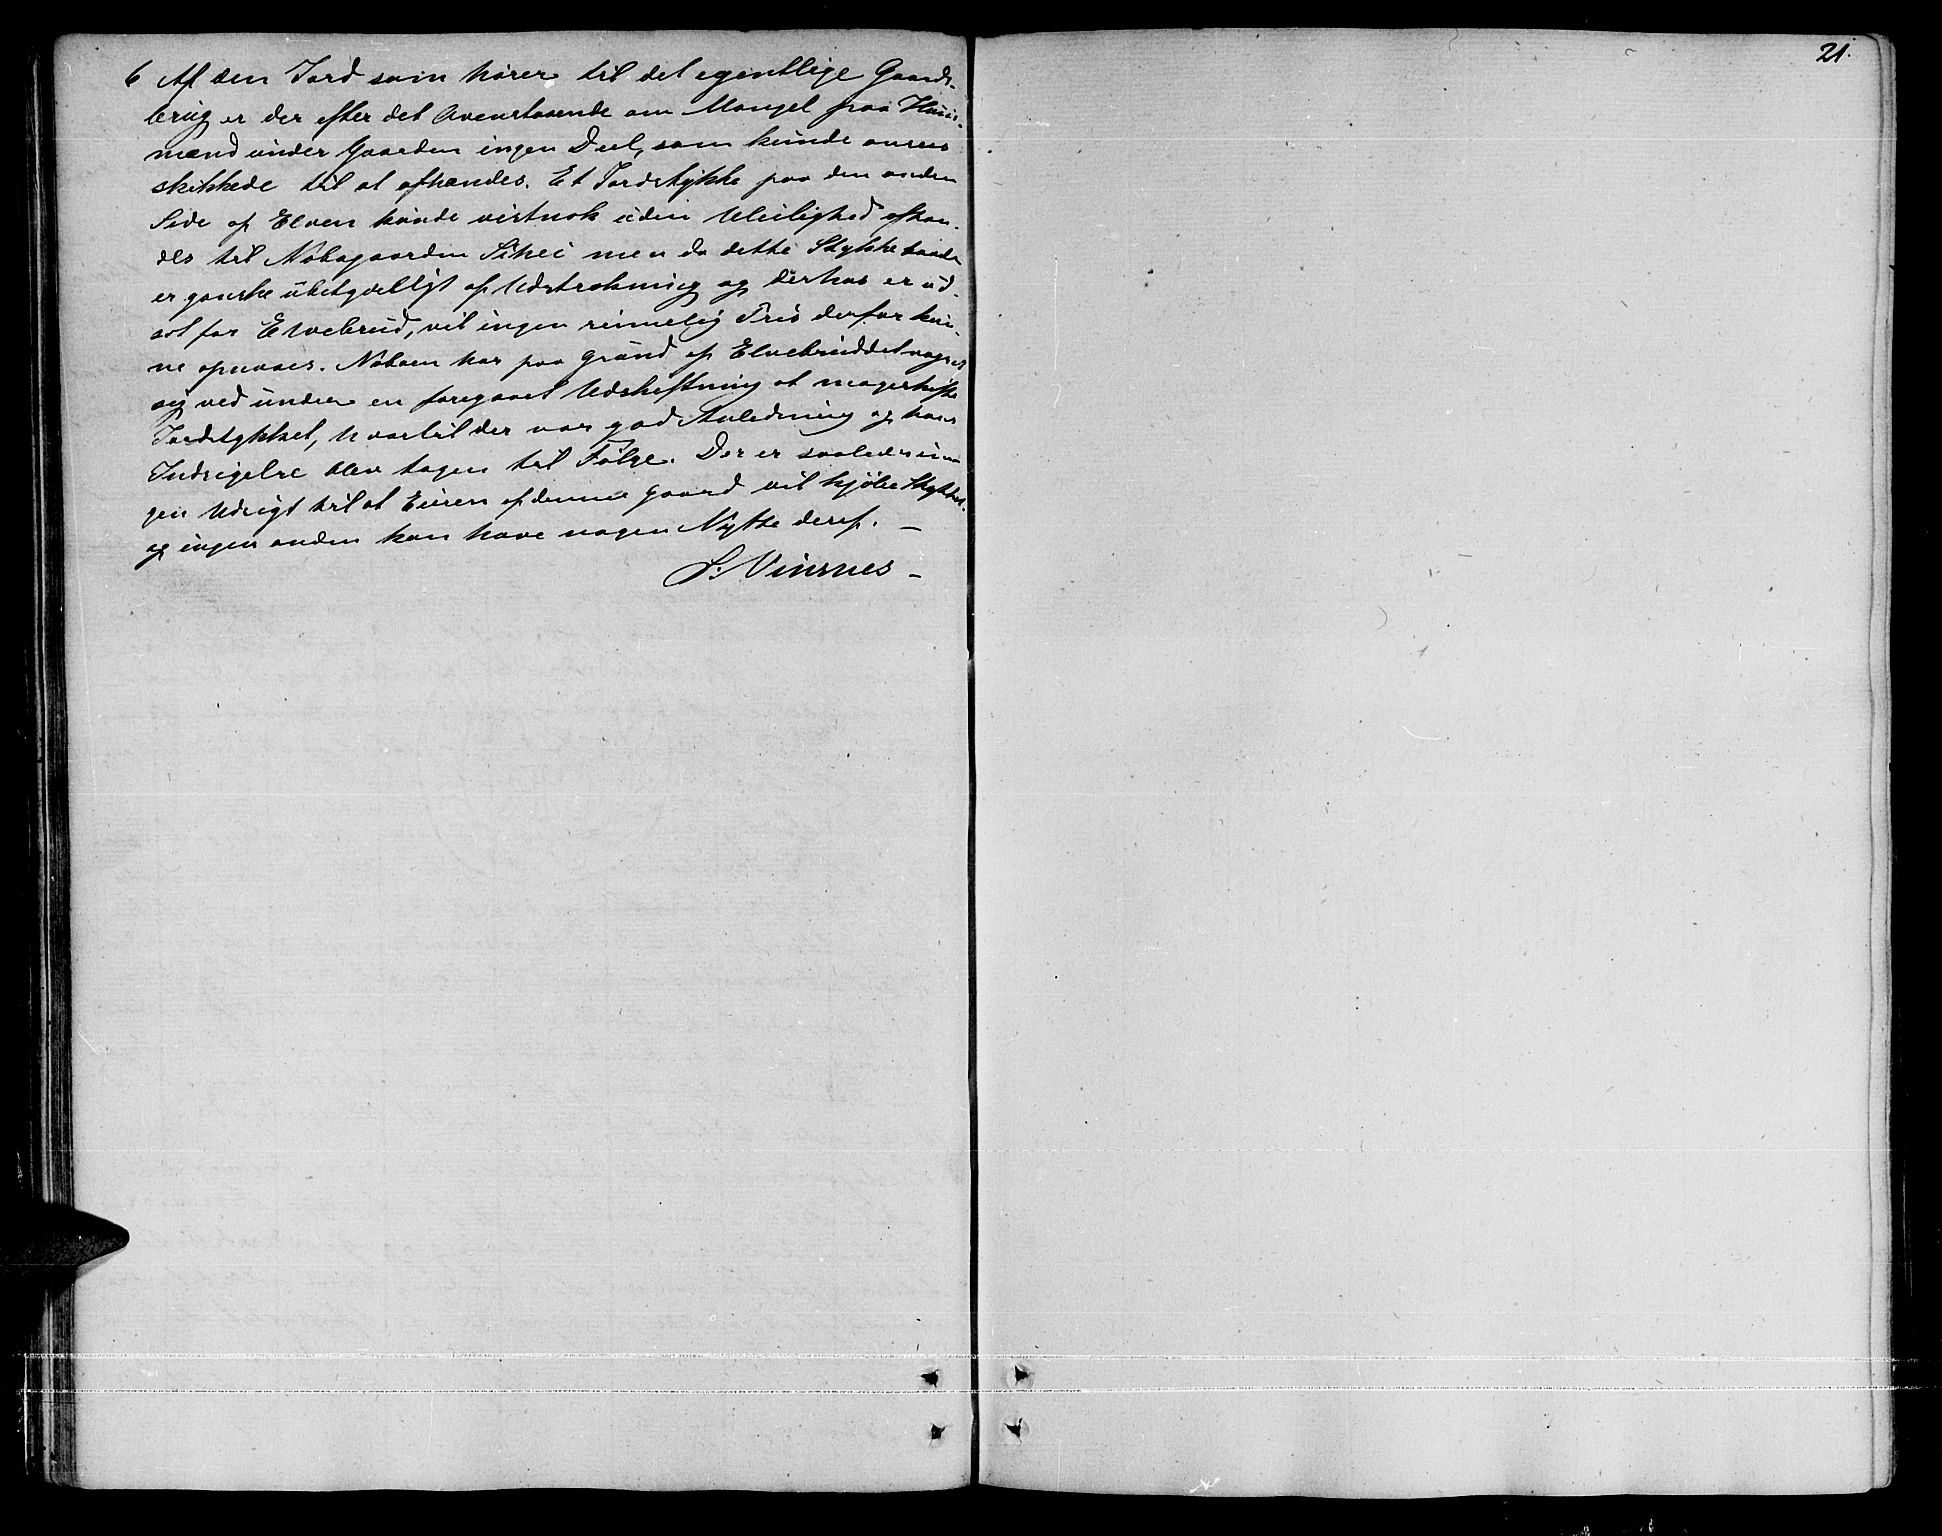 6 Af den Jord som hører til det egentlige Gaards-
brug er der efter det Ovenstaaende om Mangel paa Huus-
mænd under Gaarden ingen Deel, som kunde ansees
skikkede til at afhændes. Et Jordstykke paa den anden
Side af Elven kunde vistnok uden Uleilighed afhæn-
des til Nabogaarden men da dette Stykke baade
er ganske ubetydeligt af Udstrækning og derhos er ud-
sat for Elvebrud, vil ingen rimelig Priis derfor kun-
ne opnaaes. Naboen har paa Grund af Elvebruddet vægret
sig ved under en foregaaet Udskiftning at mageskifte
Jordstykket, hvortil der var god Anledning og hans
Indsigelse blev tagen til Følge. Der er saaledes in-
gen Udsigt til at Eieren af denne Gaard vil kjøbe Stykket
og ingen anden kan have nogen Nytte deraf. —
S. Vinsnes —
21.